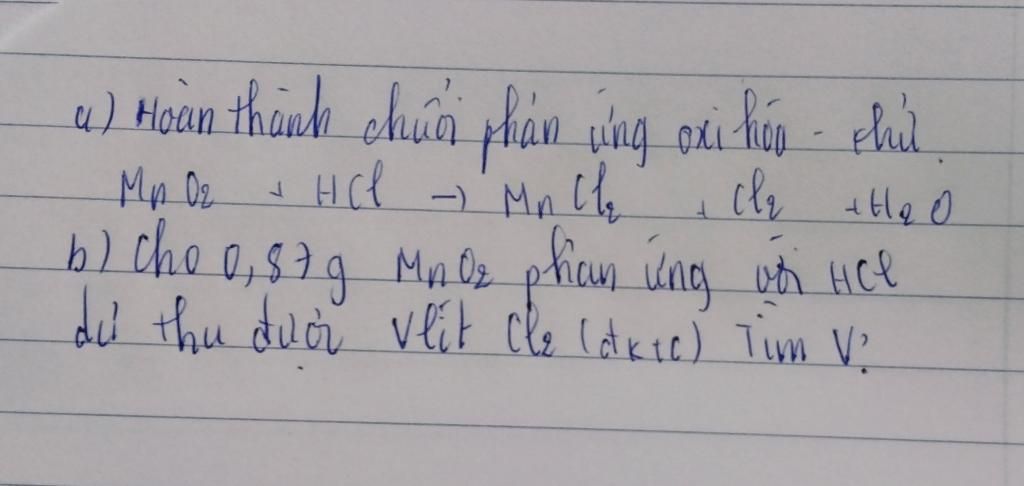 a) Hoàn thành chuỗi phản ứng oxi hóa - khử.
MnO₂ + HCl → MnCl₂ + Cl₂ + H₂O
b) Cho 0,87g MnO₂ phản ứng với HCl
dư thu được V lít Cl₂ (đktc) Tìm V?